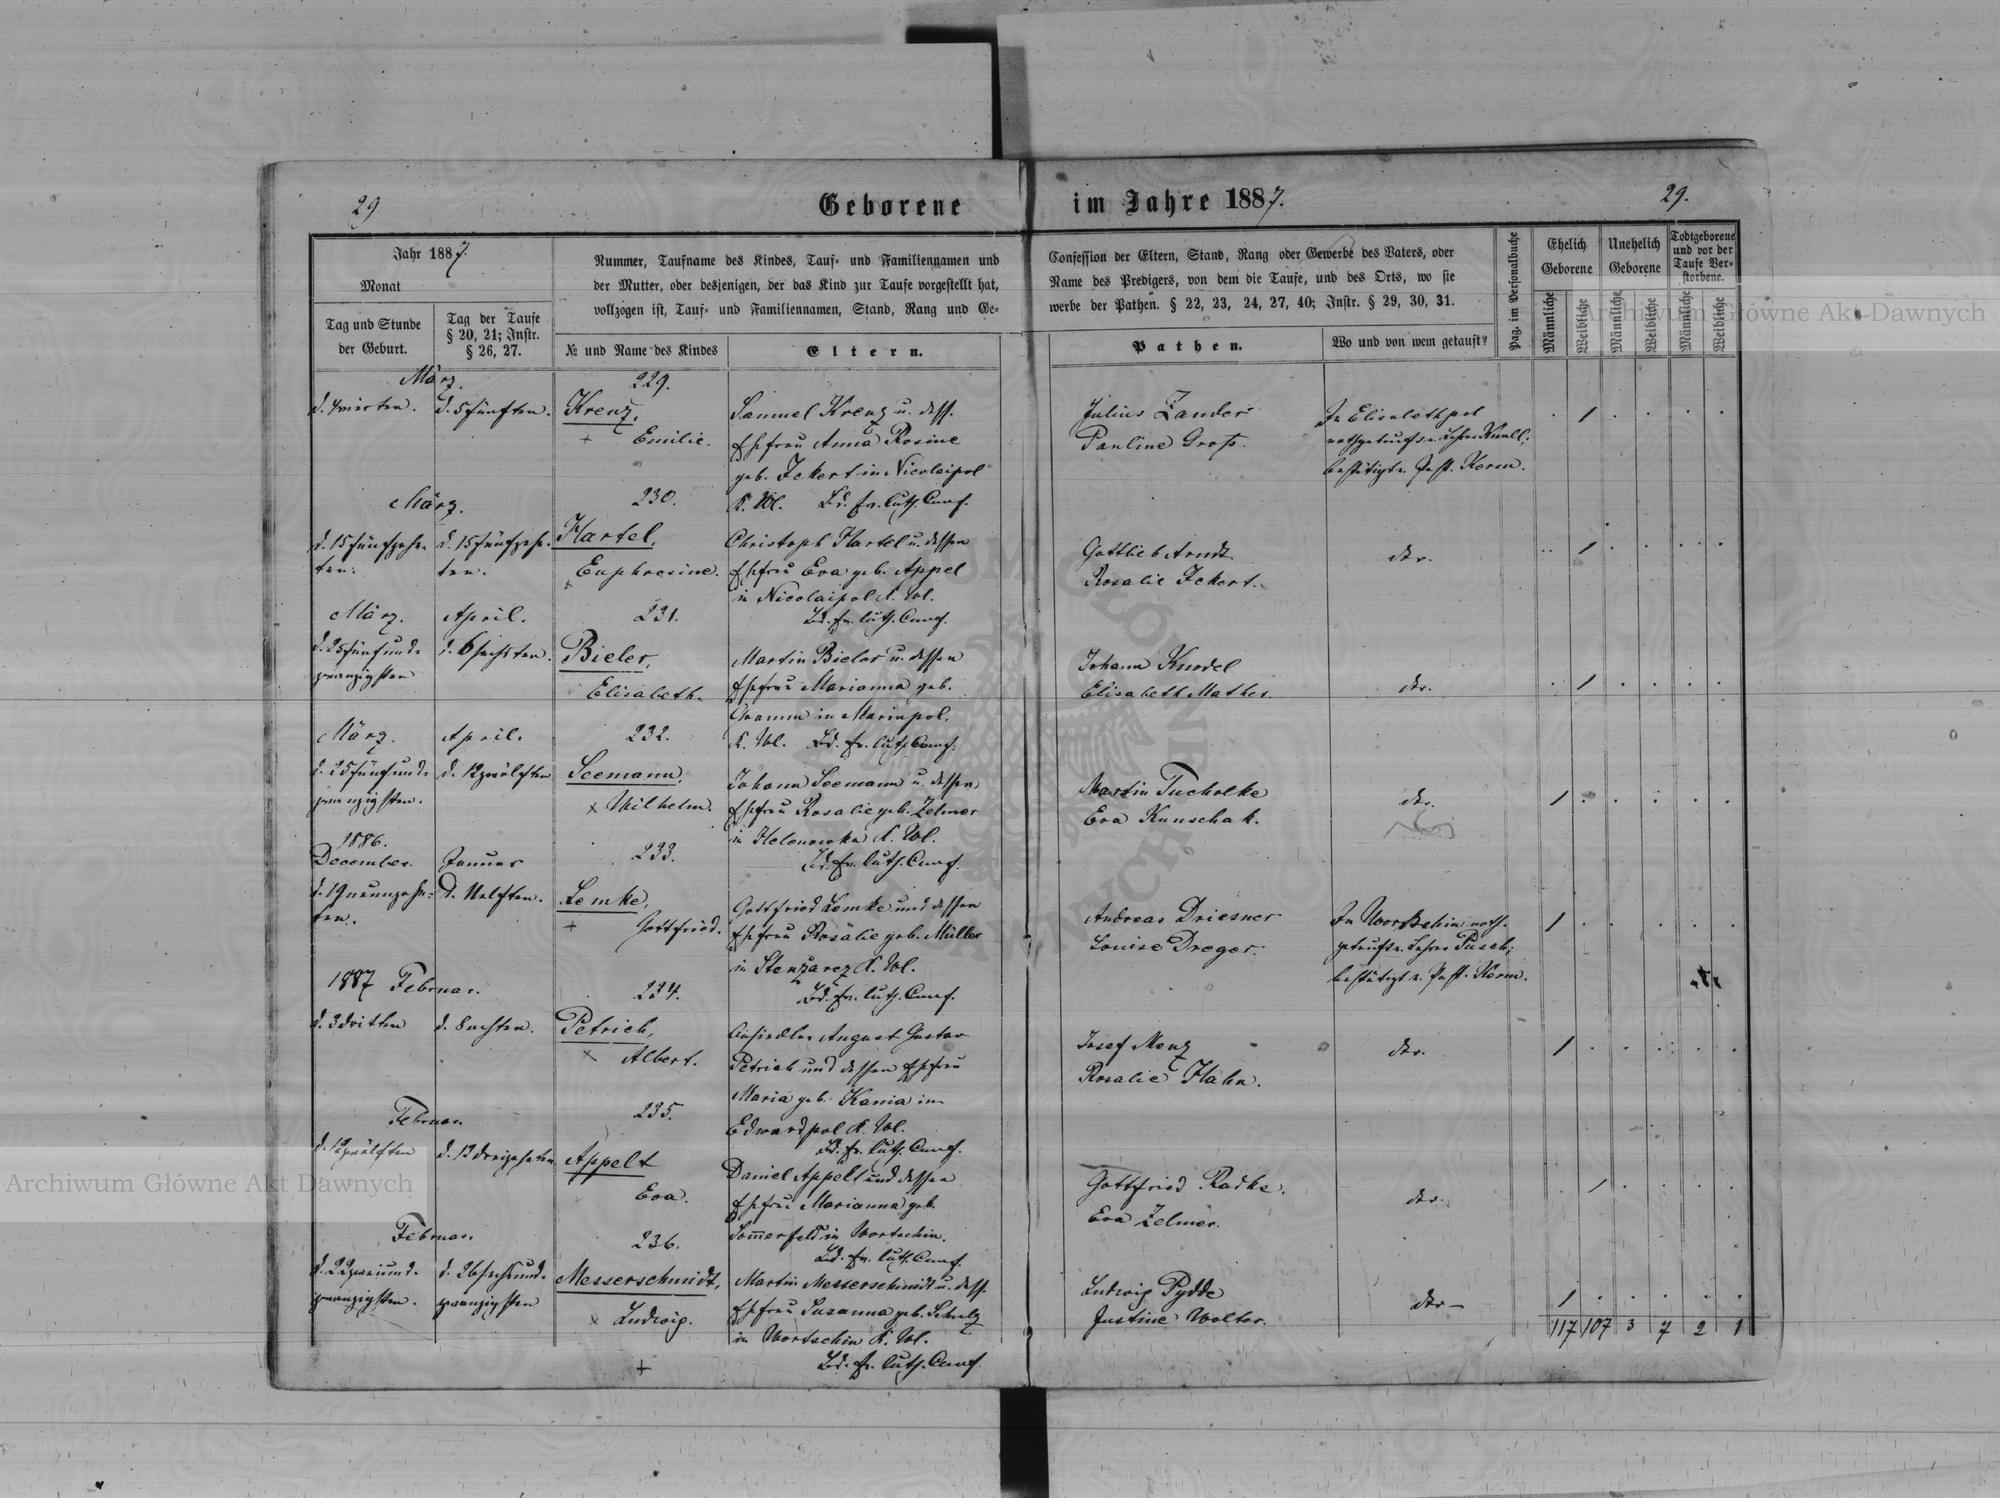 29
Geborene
im Jahre 1887.
29.
Jahr 1887.
Monat
Tag und Stunde
der Geburt.
Tag der Taufe
§ 20, 21; Instr.
§ 26, 27.
Nummer, Taufname des Kindes, Tauf- und Familiennamen und
der Mutter, oder desjenigen, der das Kind zur Taufe vorgestellt hat,
vollzogen ist, Tauf- und Familiennamen, Stand, Rang und Ge-
№ und Name des Kindes
Eltern.
Confession der Eltern, Stand, Rang oder Gewerbe des Vaters, oder
Name des Predigers, von dem die Taufe, und des Orts, wo sie
werbe der Pathen. § 22, 23, 24, 27, 40; Instr. § 29, 30, 31.
Pathen.
Wo und von wem getauft?
Pag. im Personalbuche
Ehelich
Geborene
Unehelich
Geborene
Todtgeborene
und vor der
Taufe Ver-
storbene.
Männliche
Weibliche
Männliche
Weibliche
Männliche
Weibliche
März.
d. 4 vierten.
d. 5 fünften.
229.
Krenz,
+ Emilie.
Samuel Krenz u. dess.
Ehefrau Anna Rosine
geb. Ickert in Nicolaipol
K. Wl. Bd. ev. luth. Conf.
Julius Zander
Pauline Groß.
In Elisabethpol
nothgetauft v. Lehrer Knell;
bestätigt v. Past. Kerm.
1
März.
d. 15 fünfzehn-
ten.
d. 15 fünfzehn-
ten.
230.
Hartel,
+ Euphrosine.
Christoph Hartel u. dessen
Ehefrau Eva geb. Appel
in Nicolaipol K. Wl.
Bd. ev. luth. Conf.
Gottlieb Arndt
Rosalie Ickert.
dto.
1
März.
April.
d. 25 fünfund-
zwanzigsten
d. 6 sechsten.
231.
Bieler,
Elisabeth.
Martin Bieler u. dessen
Ehefrau Marianna geb.
Gramm in Marinpol.
K. Wl. Bd. ev. luth. Conf.
Johann Knodel
Elisabeth Mathes.
dto.
1
März.
April.
d. 25 fünfund-
zwanzigsten.
d. 12 zwölften
232.
Seemann,
x Wilhelm.
Johann Seemann u. dessen
Ehefrau Rosalie geb. Zelmer
in Helenowka K. Wl.
Bd. ev. luth. Conf.
Martin Tucholke
Eva Kunschak.
dto.
1
1886.
December.
Januar
d. 19 neunzehn-
ten.
d. 11 elften.
233.
Lemke,
+ Gottfried.
Gottfried Lemke und dessen
Ehefrau Rosalie geb. Müller
in Stenzarez K. Wl.
Bd. ev. luth. Conf.
Andreas Driesner
Louise Dreger.
In Wortschin noth-
getauft v. Lehrer Pusch;
bestätigt v. Past. Kerm.
1
1887 Februar.
d. 3 dritten
d. 8 achten.
234.
Petrich,
x Albert.
Ansiedler August Gustav
Petrich und dessen Ehefrau
Maria geb. Kania in
Edwardpol K. Wl.
Bd. ev. luth. Conf.
Josef Menz
Rosalie Hahn.
dto.
1
Februar
d. 12 zwölften
d. 13 dreizehnten
235.
Appelt
x Eva.
Daniel Appelt und dessen
Ehefrau Marianna geb.
Sommerfeld in Wortschin.
Bd. ev. luth. Conf.
Gottfried Radke.
Eva Zelmer.
dto.
1
Februar.
d. 22 zweiund-
zwanzigsten.
d. 26 sechsund-
zwanzigsten
236.
Messerschmidt,
x Ludwig.
Martin Messerschmidt u. dess.
Ehefrau Susanna geb. Schulz
in Wortschin K. Wl.
Bd. ev. luth. Conf.
Ludwig Pydde
Justine Wolter.
dto
1
117 107 3 7 2 1
Archiwum Główne Akt Dawnych
Archiwum Główne Akt Dawnych